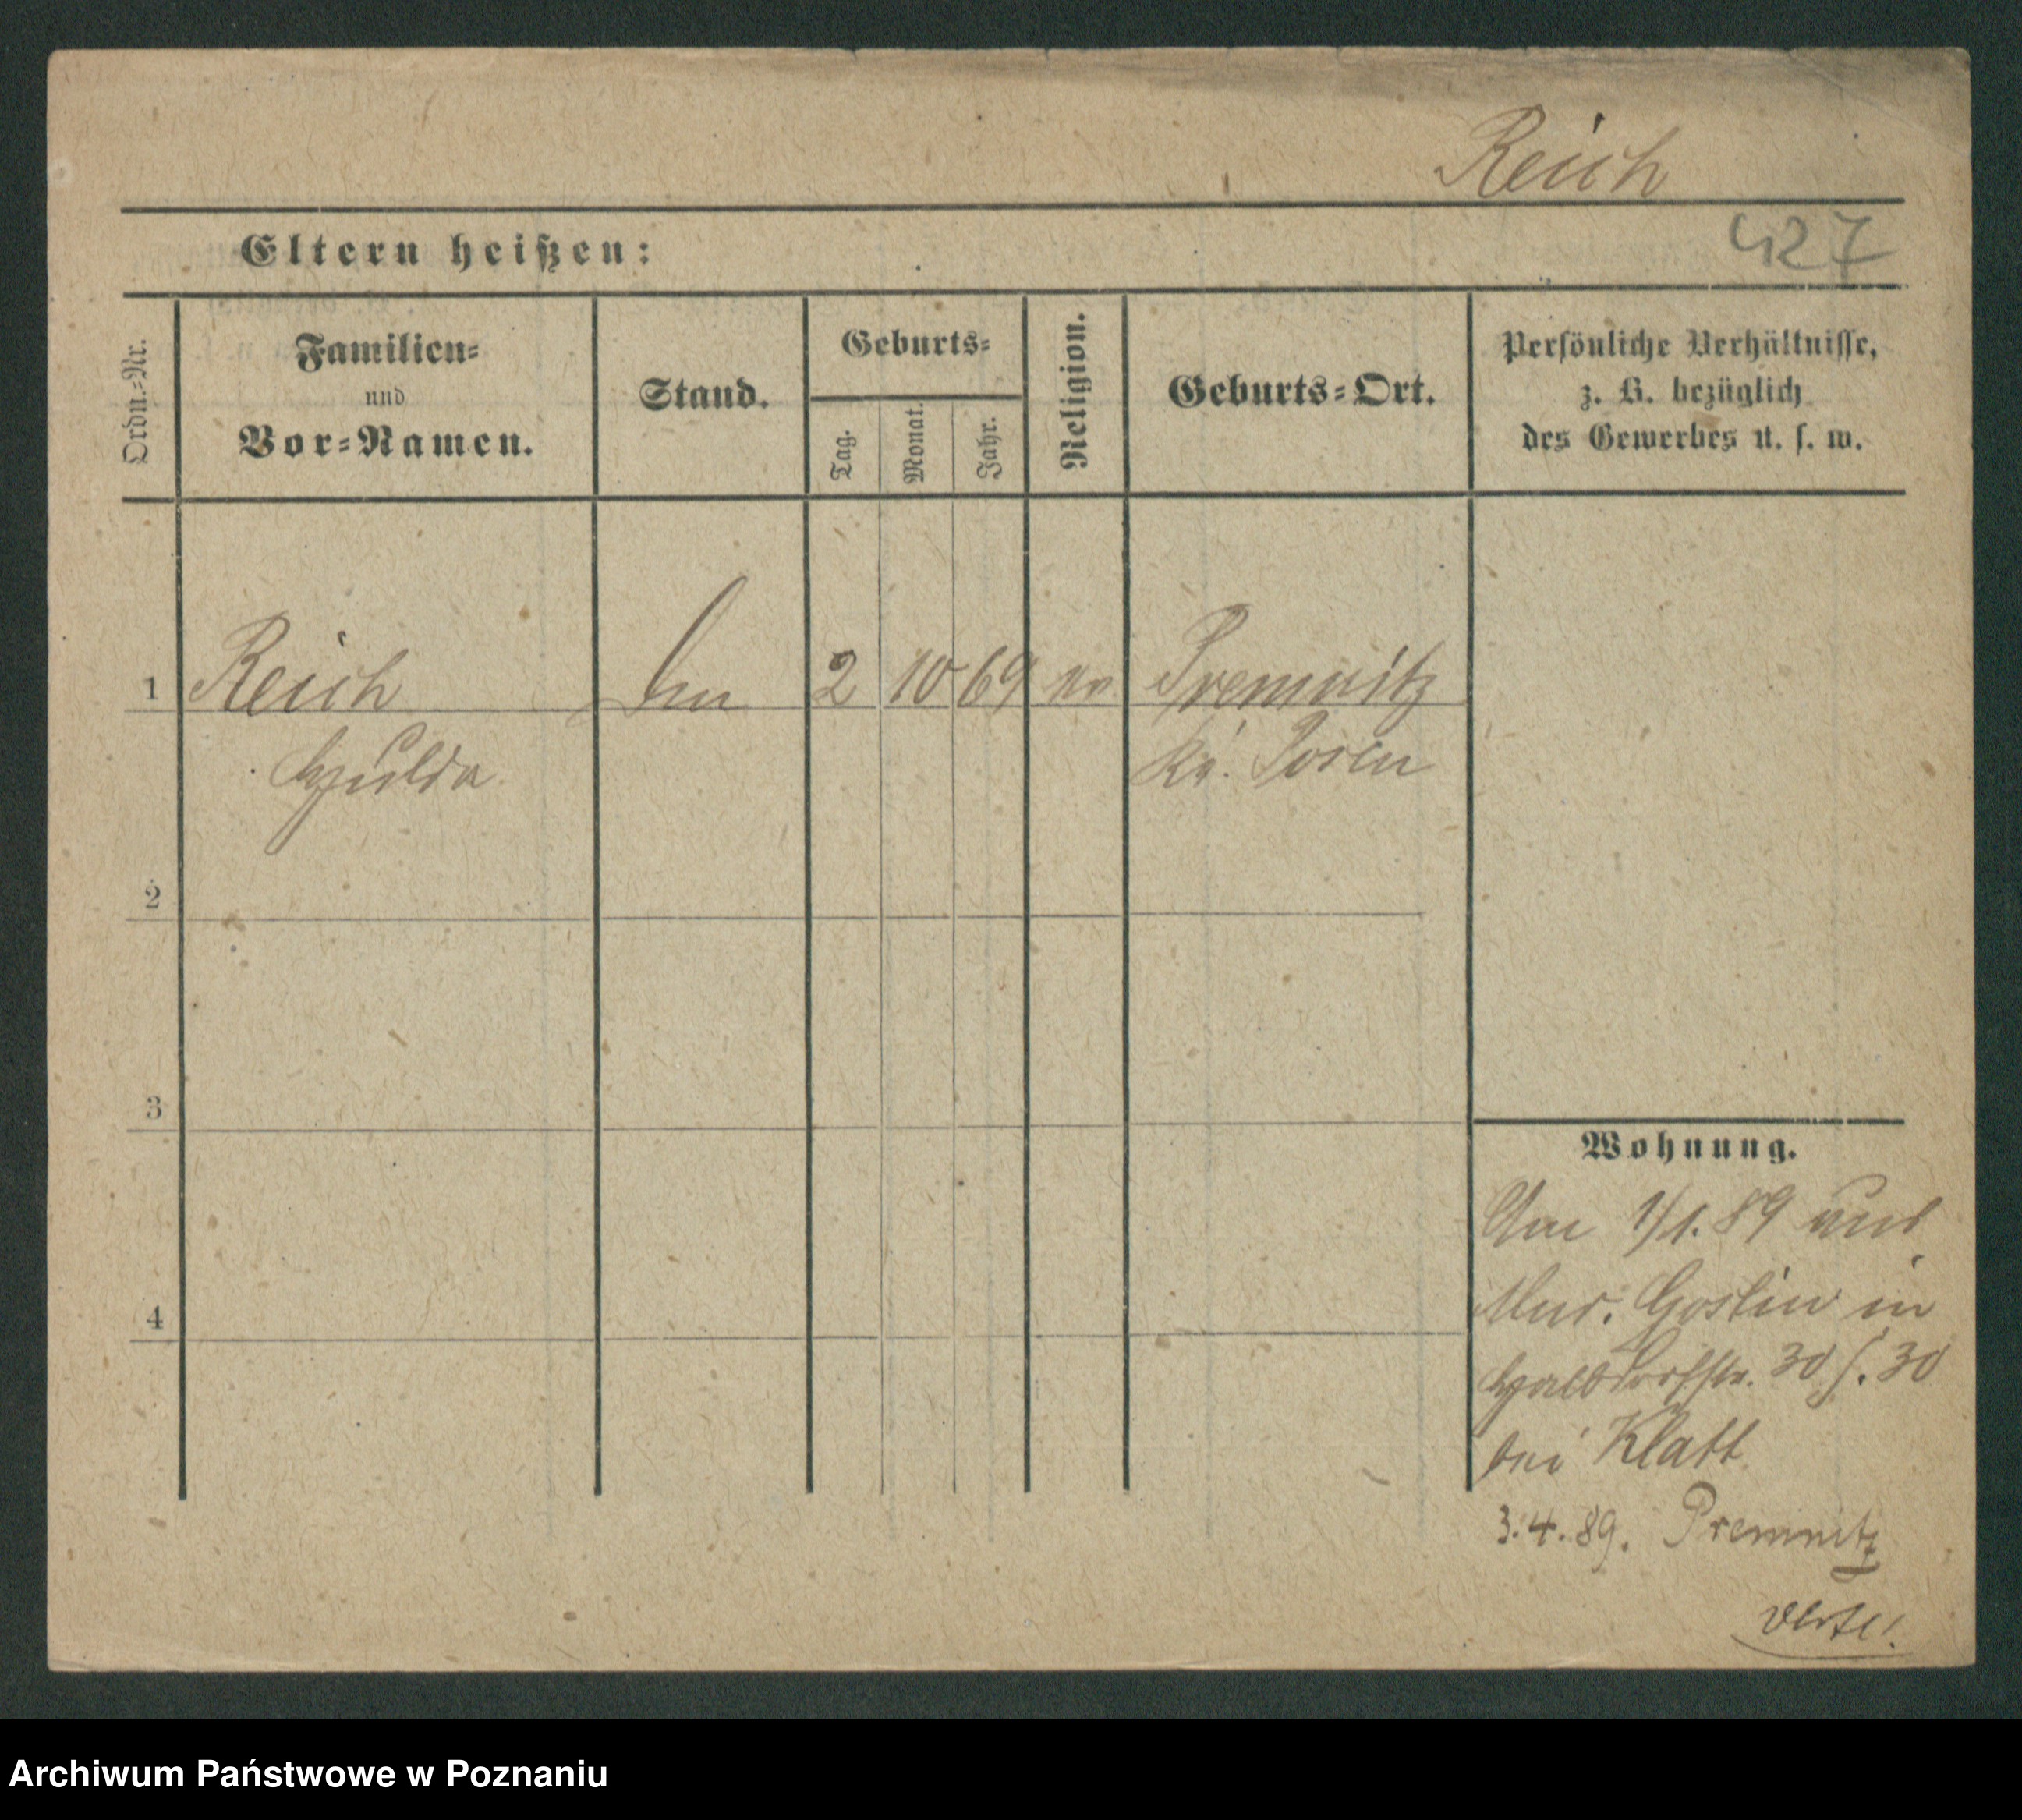 Reich
Eltern heißen:
427
Ordn.-Nr.
Familien-
und
Vor-Namen.
Stand.
Geburts-
Tag.
Monat.
Jahr.
Religion.
Geburts-Ort.
Persönliche Verhältnisse,
z. B. bezüglich
des Gewerbes u. s. w.
1 Reich 2 10 69 ev Premnitz
Hulda Kr. Posen
2
3
4
Wohnung.
Am 1/1. 89 aus
Mur. Goslin in
Halbdorfstr. 30 30
bei Klatt
3.4.89. Premnitz
verte!
Archiwum Państwowe w Poznaniu